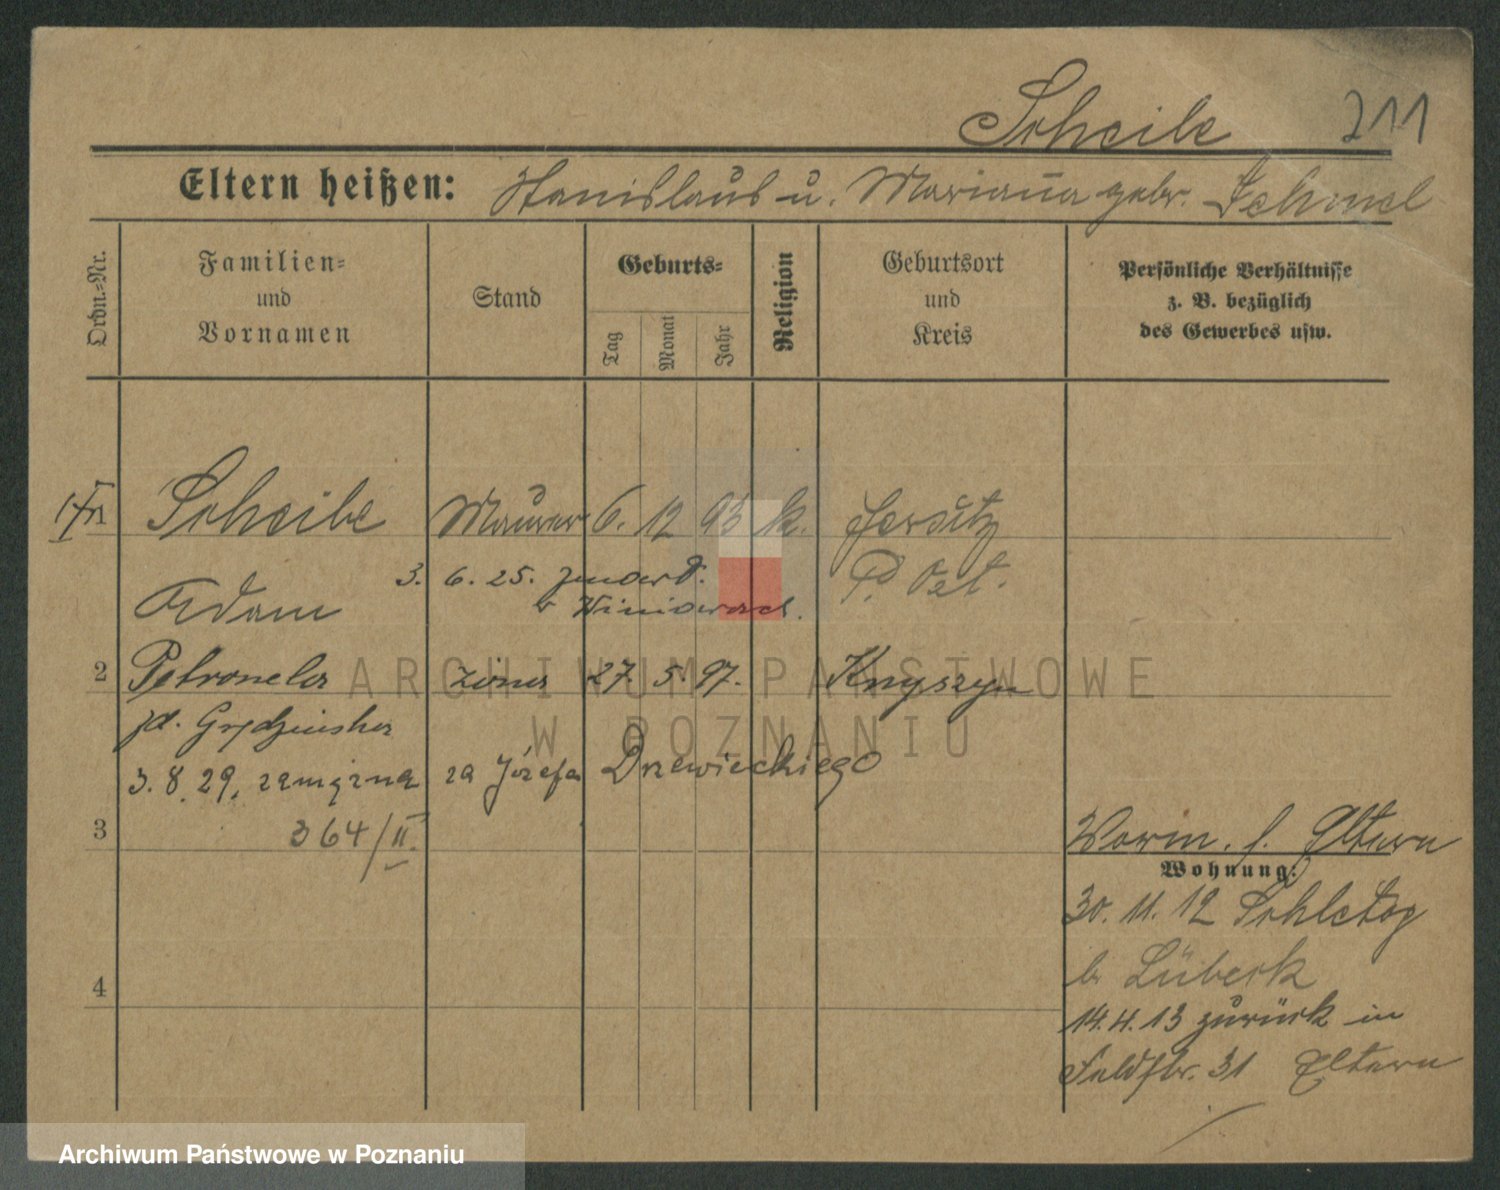 Scheibe 211
Eltern heißen: Stanislaus u. Mariana gebr. Schmel
Ordn.-Nr.
Familien-
und
Vornamen
Stand
Geburts-
Tag
Monat
Jahr
Religion
Geburtsort
und
Kreis
Persönliche Verhältnisse
z. B. bezüglich
des Gewerbes usw.
Scheibe Maurer 6. 12 93 k. Jersitz
3. 6. 25. zmarł.
Adam w Winiarach. P. Ost.
2 Petronela żona 27. 5. 97. Knyszyn
zd. Grydzinska
3. 8. 29. zamężna za Józefa Drzewieckiego
364/II.
3
Vorm. s. Eltern
Wohnung:
30. 11. 12 Schlutog
b Lübeck
4
14. 4. 13 zurück in
Feldstr. 31 Eltern
ARCHIWUM PAŃSTWOWE
W POZNANIU
Archiwum Państwowe w Poznaniu